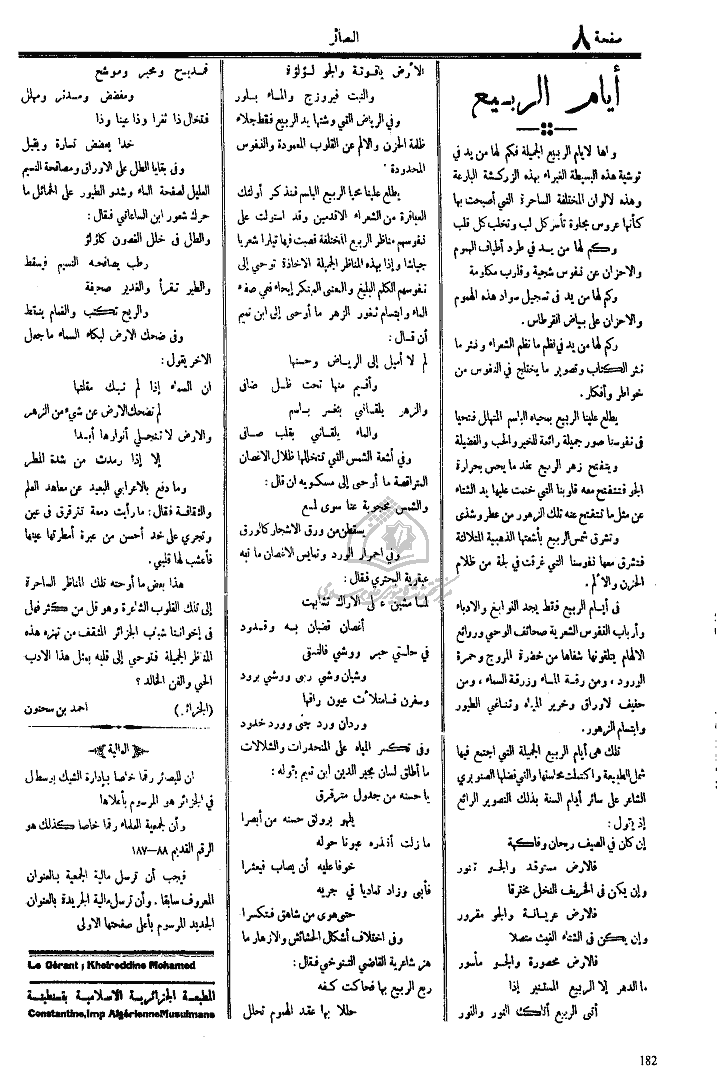 صفحة ٨
البصائر
أيام الربيع
واها لايام الربيع الجميلة فكم لها من يد في
توشية هذه البسيطة الغبراء بهذه الزركشة البارعة
وهذه لالوان المختلفة الساحرة التي أصبحت بها
كأنها عروس مجلوة تأسر كل لب وتخلب كل قلب
وكم لها من يد في طرد أطياف الهموم
والاحزان عن نفوس شجية وقلوب مكلومة
وكم لها من يد في تسجيل سواد هذه الهموم
والاحزان على بياض القرطاس .
وكم لها من يد في نظم ما نظم الشعراء ونثر ما
نثر الكتاب وتصوير ما يختلج في النفوس من
خواطر وأفكار .
يطلع علينا الربيع بمحياه الباسم المتهلل فتحيا
في نفوسنا صور جميلة رائعة للخير والحب والفضيلة
ويتفتح زهر الربيع عند ما يحس بحرارة
الجو فتتفتح معه قلوبنا التي ختمت عليها يد الشتاء
عن مثل ما تتفتح عنه تلك الزهور من عطر وشذى
وتشرق شمس الربيع بأشعتها الذهبية المتلالئة
فتشرق معها نفوسنا التي غرقت في لجة من ظلام
الحزن والالم .
في أيام الربيع فقط يجد النوابغ والادباء
وأرباب النفوس الشعرية صحائف الوحي وروائع
الالهام يتلقونها شفاها من خضرة المروج وحمرة
الورود ، ومن رقة الماء وزرقة السماء ، ومن
حفيف لاوراق وخرير المياه وتناغي الطيور
وابتسام الزهور.
تلك هي أيام الربيع الجميلة التي اجتمع فيها
شمل الطبيعة واكتملت محاسنها والتي فضلها الصنوبري
الشاعر على سائر أيام السنة بذلك التصوير الرائع
إذ يقول :
إن كان في الصيف ريحان وفاكهة
فالارض مستوقد والجو تنور
وإن يكن في الخريف النخل مخترقا
فالارض عريانة والجو مقرور
وإن يكن في الشتاء الغيث متصلا
فالارض محصورة والجو مأسور
ما الدهر إلا الربيع المستنير إذا
أتى الربيع أتاك النور والنور
الارض ياقوتة والجو لؤلؤة
والنبت فيروزج والماء بلور
وفي الرياض التي وشتها يد الربيع فقط جلاء
ظلمة الحزن والالم عن القلوب المعمودة والنفوس
المحدودة .
يطلع علينا محيا الربيع الباسم فنذكر أولئك
العباقرة من الشعراء الاقدمين وقد استولت على
نفوسهم مناظر الربيع المختلفة فصبت فيها تيارا شعريا
جياشا وإذا بهذه المناظر الجميلة الاخاذة توحي إلى
نفوسهم الكلم البليغ والمعنى المبتكر إيحاء ففي صفاء
الماء وابتسام ثغور الزهر ما أوحى إلى ابن تميم
أن قال :
لم لا أميل إلى الرياض وحسنها
وأقيم منها تحت ظل ضافي
والزهر يلقاني بثغر باسم
والماء يلقاني بقلب صافي
وفي أشعة الشمس التي تتخللها ظلال الاغصان
المتراقصة ما أوحى إلى مسكويه ان قال :
والشمس محجوبة عنا سوى لمع
يسقطن من ورق الاشجار كالورق
وفي احمرار الورد وتمايس الاغصان ما نبه
عبقرية البحتري فقال :
لما مشين بذي الاراك تشابهت
أغصان قضبان به وقدود
في حلتي حبر وروض فالتقى
وشيان وشي ربى ووشي برود
وسفرن فامتلأت عيون راقها
وردان ورد جنى وورد خدود
وفي تكسر المياه على المنحدرات والشلالات
ما أطلق لسان مجير الدين ابن تميم بقوله :
يا حسنه من جدول مترقرق
يلهو برونق حسنه من أبصرا
ما زلت أنذره عيونا حوله
خوفا عليه أن يصاب فيعثرا
فأبى وزاد تماديا في جريه
حتى هوى من شاهق فتكسرا
وفي اختلاف أشكال الحشائش والازهار ما
هز شاعرية القاضي التنوخي فقال :
ربع الربيع بها فحاكت كفه
حللا بها عقد الهموم تحلل
فمدبج ومحبر وموشع
ومفضض ومسدنر ومهلل
فتخال ذا ثغرا وذا عينا وذا
خدا يعضض تارة ويقبل
وفي بقايا الطل على الاوراق ومصافحة النسيم
العليل لصفحة الماء وشدو الطيور على الخمائل ما
حرك شعور ابن الساعاتي فقال :
والطل في خلل الغصون كلؤلؤ
رطب يصافحه النسيم فيسقط
والطير تقرأ والغدير صحيفة
والريح تكتب والغمام ينقط
وفي ضحك الارض لبكاء السماء ما جعل
الاخر يقول :
ان السماء إذا لم تبك مقلتها
لم تضحك الارض عن شيء من الزهر
والارض لا تنجلي أنوارها أبدا
إلا إذا رمدت من شدة المطر
وما دفع بالاعرابي البعيد عن معاهد العلم
والثقافة فقال : ما رأيت دمعة تترقرق في عين
وتجري على خد أحسن من عبرة أمطرتها عينها
فأعشب لها قلبي .
هذا بعض ما أوحته تلك المناظر الساحرة
إلى تلك القلوب الشاعرة وهو قل من كثر فهل
في إخواننا شباب الجزائر المثقف من تهزه هذه
المناظر الجميلة فتوحي إلى قلبه بمثل هذا الادب
الحي والفن الخالد ؟
(الجزائر) احمد بن سحنون
المالية
ان للبصائر رقما خاصا بإدارة الشيك بوسطال
في الجزائر هو المرسوم بأعلاها
وأن لجمعية العلماء رقما خاصا كذلك هو
الرقم القديم ٨٨-١٨٧
فيجب أن ترسل مالية الجمعية بالعنوان
المعروف سابقا . وأن ترسل مالية الجريدة بالعنوان
الجديد المرسوم بأعلى صفحتها الاولى
Le Gérant ; Kheireddine Mohamed
المطبعة الجزائرية الاسلامية بقسنطينة
Constantine, Imp Algérienne Musulmane
182